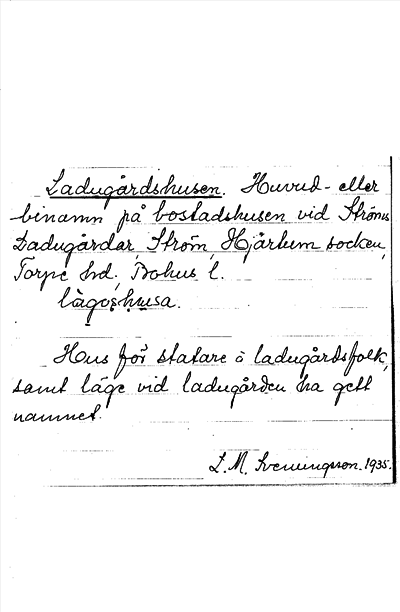 Ladugårdshusen. Huvud- eller
binamn på bostadshusen vid Ströms
Ladugårdar, Ström, Hjärtum socken,
Torpe hd, Bohus l.
làgọṣhụsa.
Hus för statare o ladugårdsfolk,
samt läge vid ladugården ha gett
namnet.
L. M. Svenungsson. 1935.